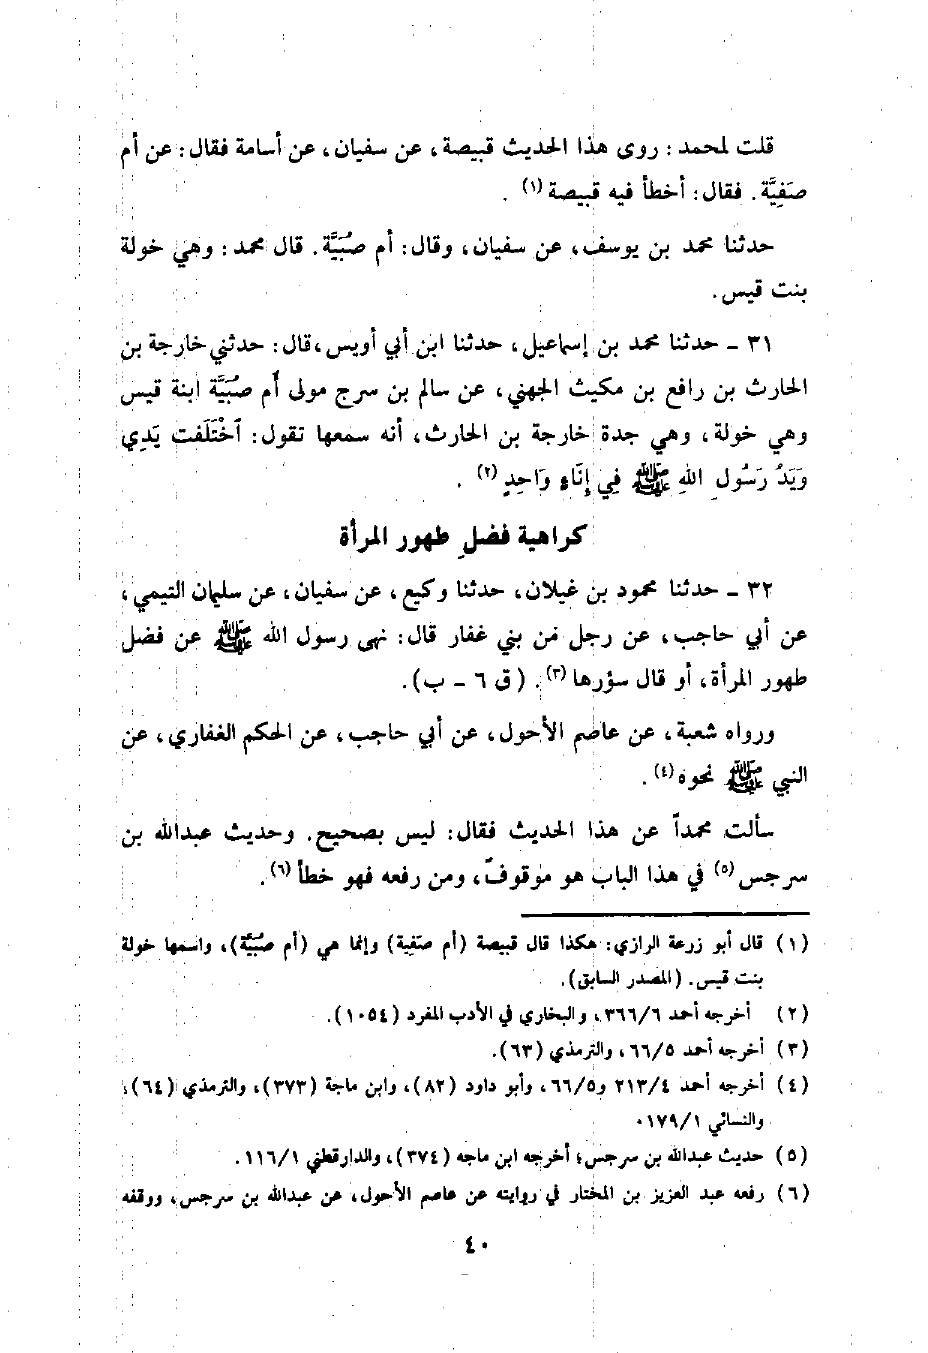 قلت لمحمد : روى هذا الحديث قبيصة ، عن سفيان ، عن أسامة فقال : عن أم
صَفِيَّة . فقال : أخطأ فيه قبيصة (١) .
حدثنا محمد بن يوسف ، عن سفيان ، وقال : أم صُبَيَّة . قال محمد : وهي خولة
بنت قيس .
٣١ ـ حدثنا محمد بن إسماعيل ، حدثنا ابن أبي أويس ، قال : حدثني خارجة بن
الحارث بن رافع بن مكيث الجهني ، عن سالم بن سرج مولى أم صُبَيَّة ابنة قيس
وهي خولة ، وهي جدة خارجة بن الحارث ، أنه سمعها تقول : ٱخْتَلَفت يَدِي
وَيَدُ رَسُولِ اللهِ ﷺ فِي إِنَاءٍ وَاحِدٍ (٢) .
كراهية فضلِ طهور المرأة
٣٢ ـ حدثنا محمود بن غيلان ، حدثنا وكيع ، عن سفيان ، عن سليمان التيمي ،
عن أبي حاجب ، عن رجل من بني غفار قال : نهى رسول الله ﷺ عن فضل
طهور المرأة ، أو قال سؤرها (٣) . ( ق ٦ ـ ب ) .
ورواه شعبة ، عن عاصم الأحول ، عن أبي حاجب ، عن الحكم الغفاري ، عن
النبي ﷺ نحوه (٤) .
سألت محمداً عن هذا الحديث فقال : ليس بصحيح . وحديث عبدالله بن
سرجس (٥) في هذا الباب هو موقوف ، ومن رفعه فهو خطأ (٦) .
(١) قال أبو زرعة الرازي : هكذا قال قبيصة ( أم صَفية ) وإنما هي ( أم صُبَيَّة ) ، واسمها خولة
بنت قيس . ( المصدر السابق ) .
(٢) أخرجه أحمد ٣٦٦/٦ ، والبخاري في الأدب المفرد (١٠٥٤) .
(٣) أخرجه أحمد ٦٦/٥ ، والترمذي (٦٣) .
(٤) أخرجه أحمد ٢١٣/٤ و٦٦/٥ ، وأبو داود (٨٢) ، وابن ماجة (٣٧٣) ، والترمذي (٦٤) ،
والنسائي ١٧٩/١ .
(٥) حديث عبدالله بن سرجس؛ أخرجه ابن ماجه (٣٧٤) ، والدارقطني ١١٦/١ .
(٦) رفعه عبد العزيز بن المختار في روايته عن عاصم الأحول ، عن عبدالله بن سرجس ، ووقفه
٤٠